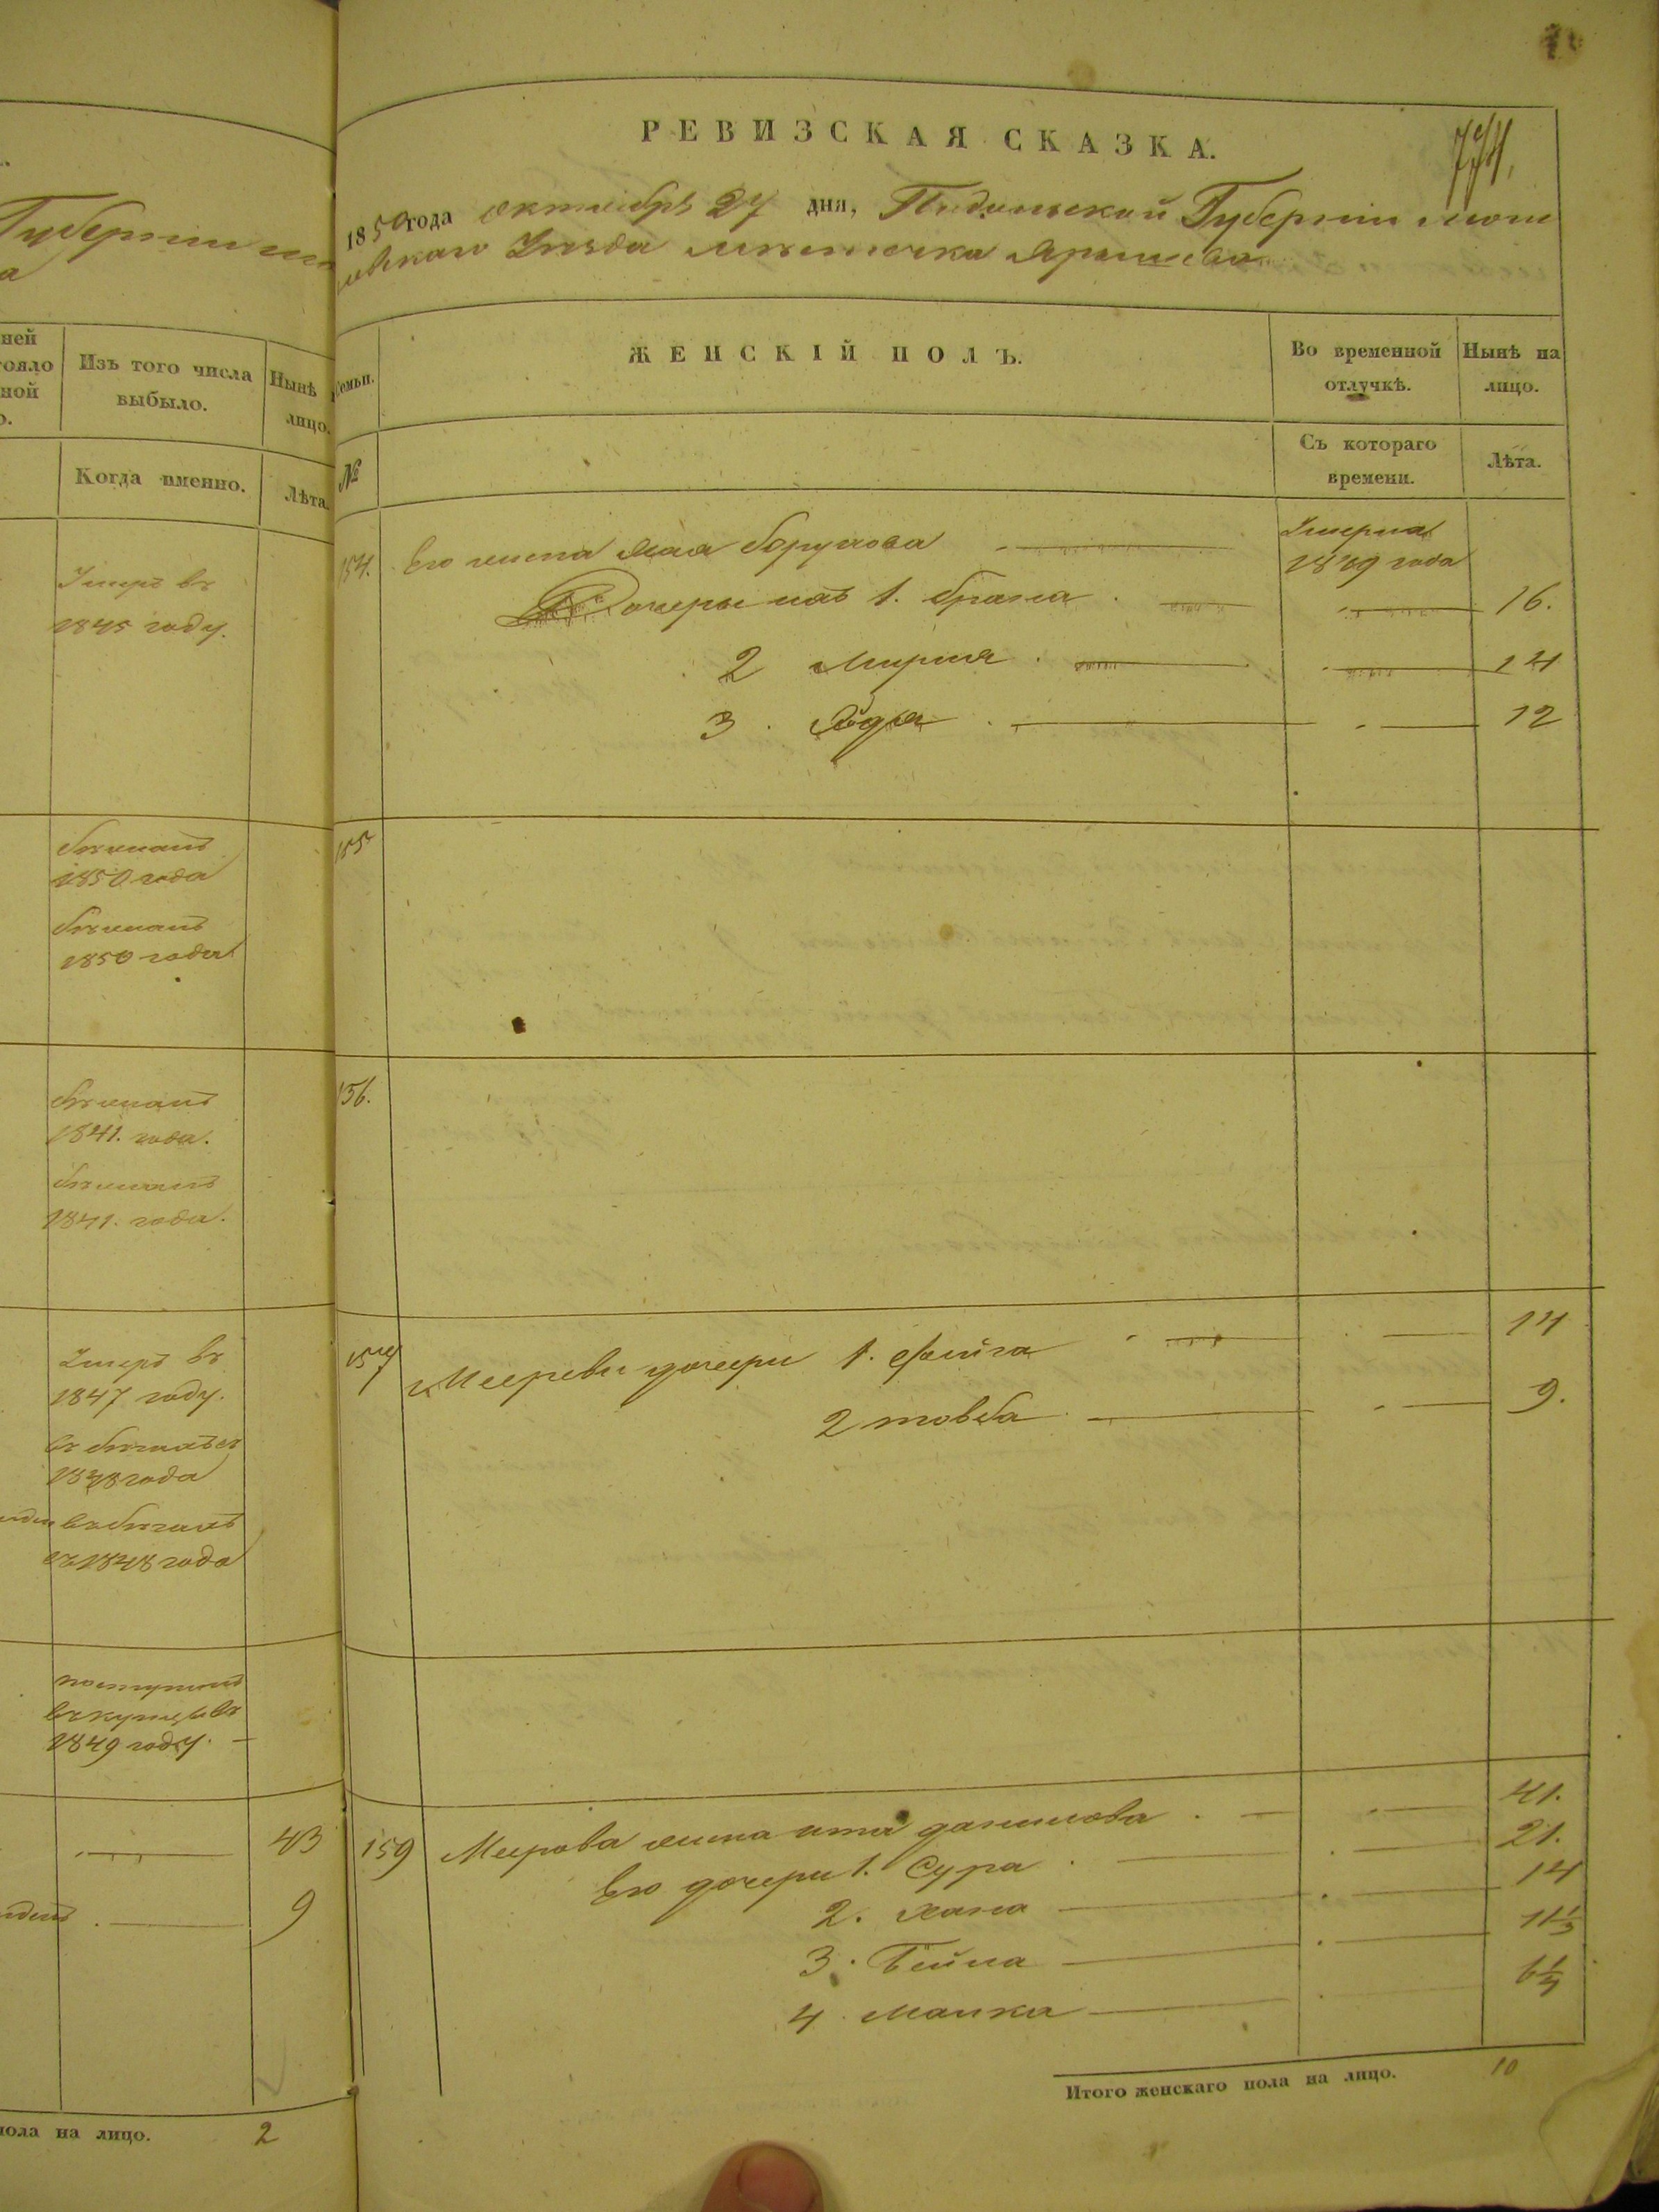 Губерніи
а
ней
тояло
ной
о.
Изъ того числа
выбыло.
Нынѣ
лицо.
Когда именно.
Лѣта.
Умеръ въ
1845 году.
бѣжалъ
1850 года
бѣжалъ
1850 года
бѣжалъ
1841. года.
бѣжалъ
1841. года.
Умеръ въ
1847 году.
въ бѣгахъ съ
1848 года
въ бѣгахъ
съ 1848 года
поступилъ
въ купцы въ
1849 году.
43
9
пола на лицо. 2
РЕВИЗСКАЯ СКАЗКА.
1850 года октября 27 дня, Подольской Губерніи Моги
левскаго Уѣзда мѣстечка Ярышева
Семьи.
ЖЕНСКІЙ ПОЛЪ.
Во временной
отлучкѣ.
Нынѣ на
лицо.
№
Съ котораго
времени.
Лѣта.
154. Его жена Хая Борухова Умерла
1849 года
Дочеры ихъ 1. 16.
2 Мирля 14
3 12
155
156.
157 Мееровы дочери 1. Фейга 14
2 товба 9.
159 Меерова жена ита данилова 41.
Его дочери 1. Сура 21.
2. хана 14
3. Бейла 11½
4 Малка 6¼
Итого женскаго пола на лицо. 10